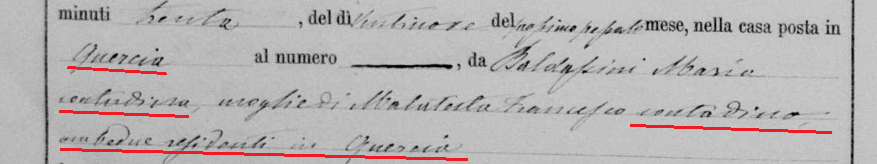 minuti trenta, del dì ventinove del prossimo passato mese, nella casa posta in
Quercia al numero ———, da Baldassini Maria
contadina, moglie di Malatesta Francesco contadino,
ambedue residenti in Quercia